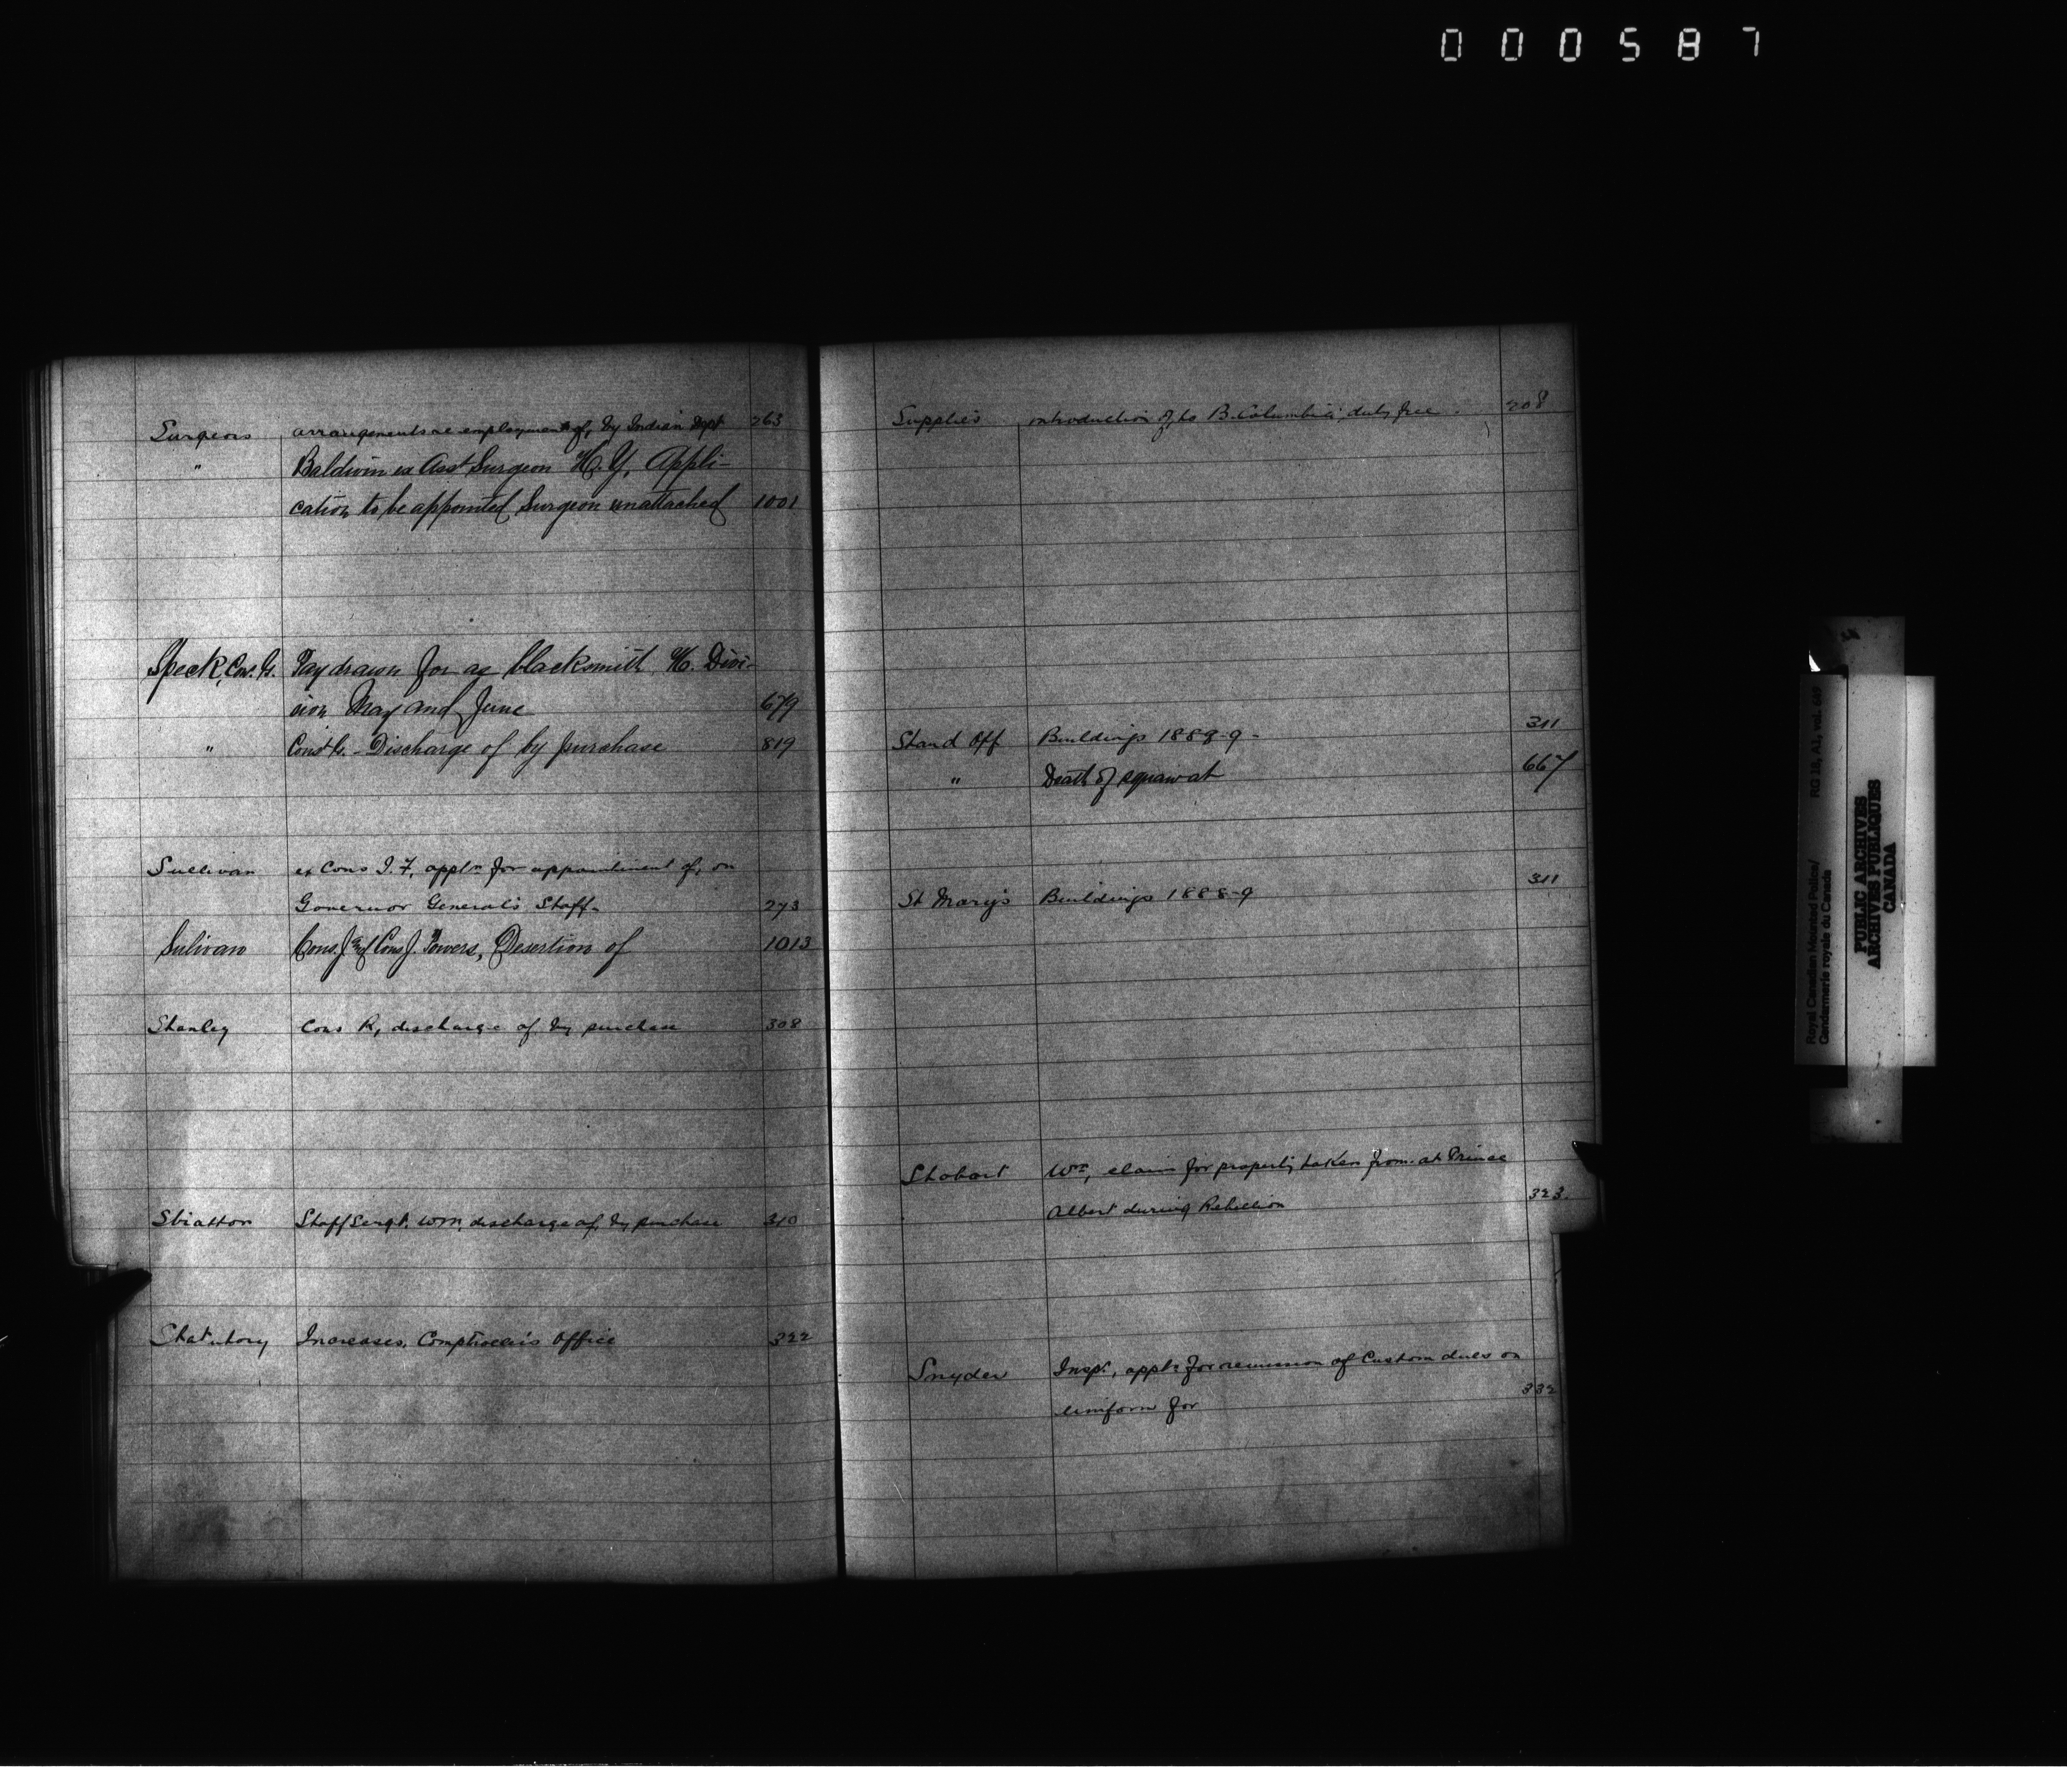 000587
Surgeons arrangements re employment of, by Indian Dept 263
" Baldwin ex Asst Surgeon H. Y. Appli-
cation to be appointed Surgeon unattached 1001
Speck, Cons. G. Pay drawn for as blacksmith H. Divi-
sion May and June 679
" Const G. - Discharge of by purchase 819
Sullivan ex Cons J. F, appln for appointment of, on
Governor General's Staff. 273
Sulivan Cons. J and Cons J. Powers, Desertion of 1013
Stanley Cons R, discharge of, by purchase 308
Stratton Staff Sergt. Wm, discharge of, by purchase 310
Statutory Increases, Comptroller's Office 322
Supplies introduction of, to B. Columbia, duty free. 208
Stand Off Buildings 1888-9 - 311
" Death of squaw at 667
St Mary's Buildings 1888-9 311
Stobart Wm, claim for property taken from at Prince
Albert during Rebellion 323.
Snyder Inspr, appln for remission of Custom dues on
uniform for 332
Royal Canadian Mounted Police/
Gendarmerie royale du Canada
RG 18, A1, vol. 649
PUBLIC ARCHIVES
ARCHIVES PUBLIQUES
CANADA